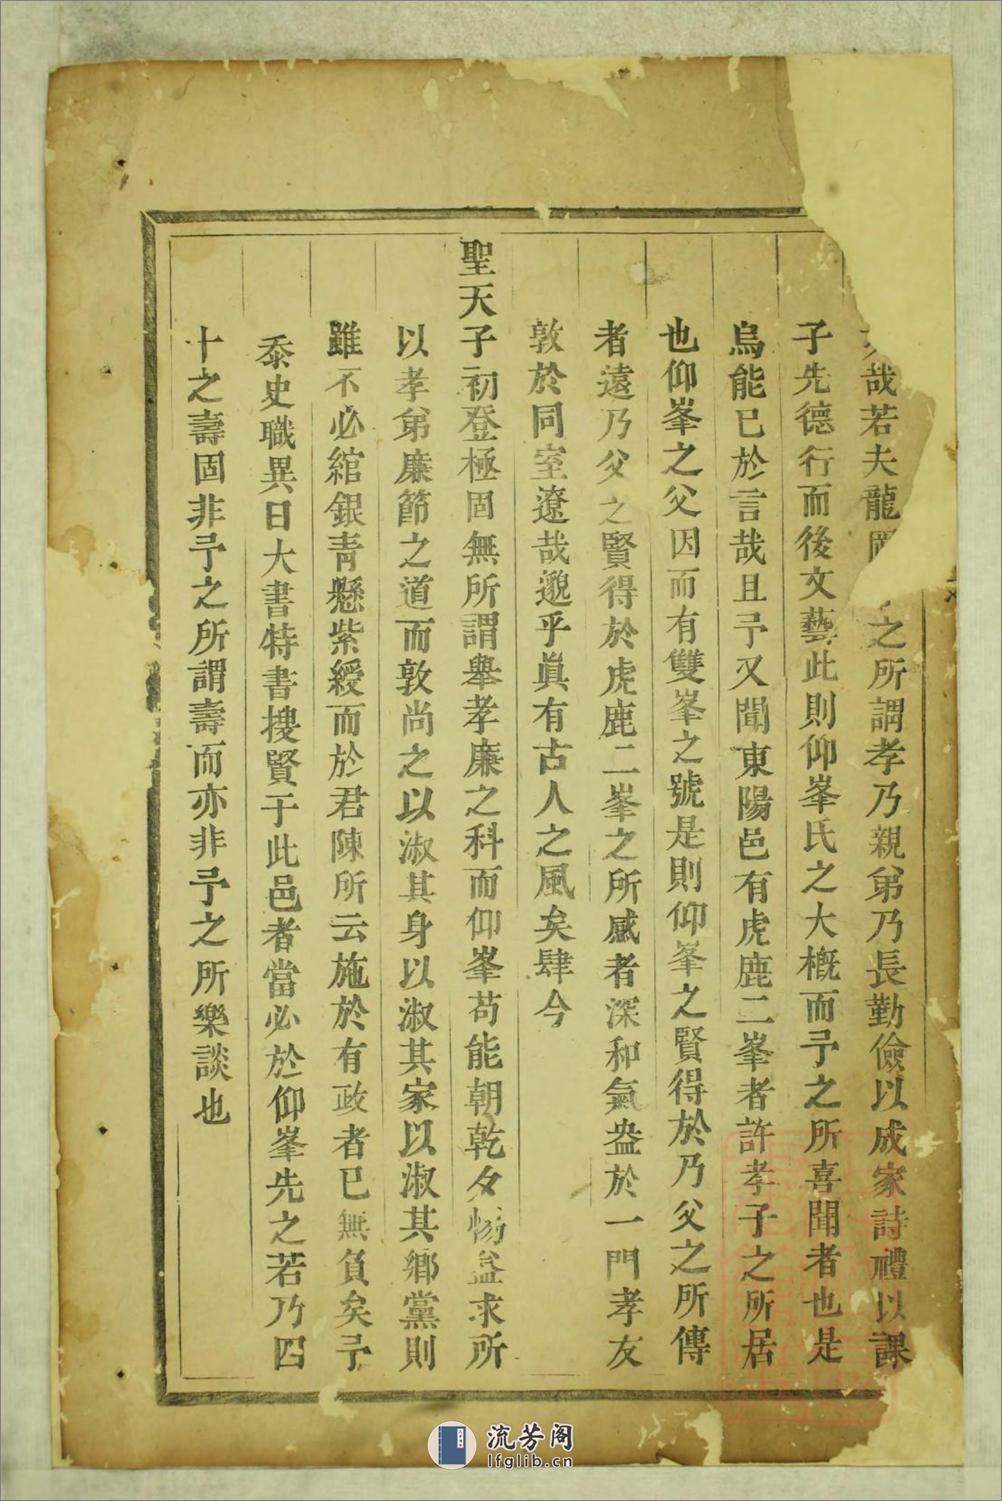 哉若夫龍之所謂孝乃親弟乃長勤儉以成家詩禮以課
子先德行而後文藝此則仰峯氏之大槪而予之所喜聞者也是
烏能已於言哉且予又聞東陽邑有虎鹿二峯者許孝子之所居
也仰峯之父因而有雙峯之號是則仰峯之賢得於乃父之所傳
者遠乃父之賢得於虎鹿二峯之所感者深和氣盎於一門孝友
敦於同室遼哉邈乎眞有古人之風矣肆今
聖天子初登極固無所謂舉孝廉之科而仰峯苟能朝乾夕惕益求所
以孝弟廉節之道而敦尚之以淑其身以淑其家以淑其鄉黨則
雖不必綰銀靑懸紫綬而於君陳所云施於有政者已無負矣予
忝史職異日大書特書搜賢于此邑者當必於仰峯先之若乃四
十之壽固非予之所謂壽而亦非予之所樂談也
流芳阁
lfglib.cn